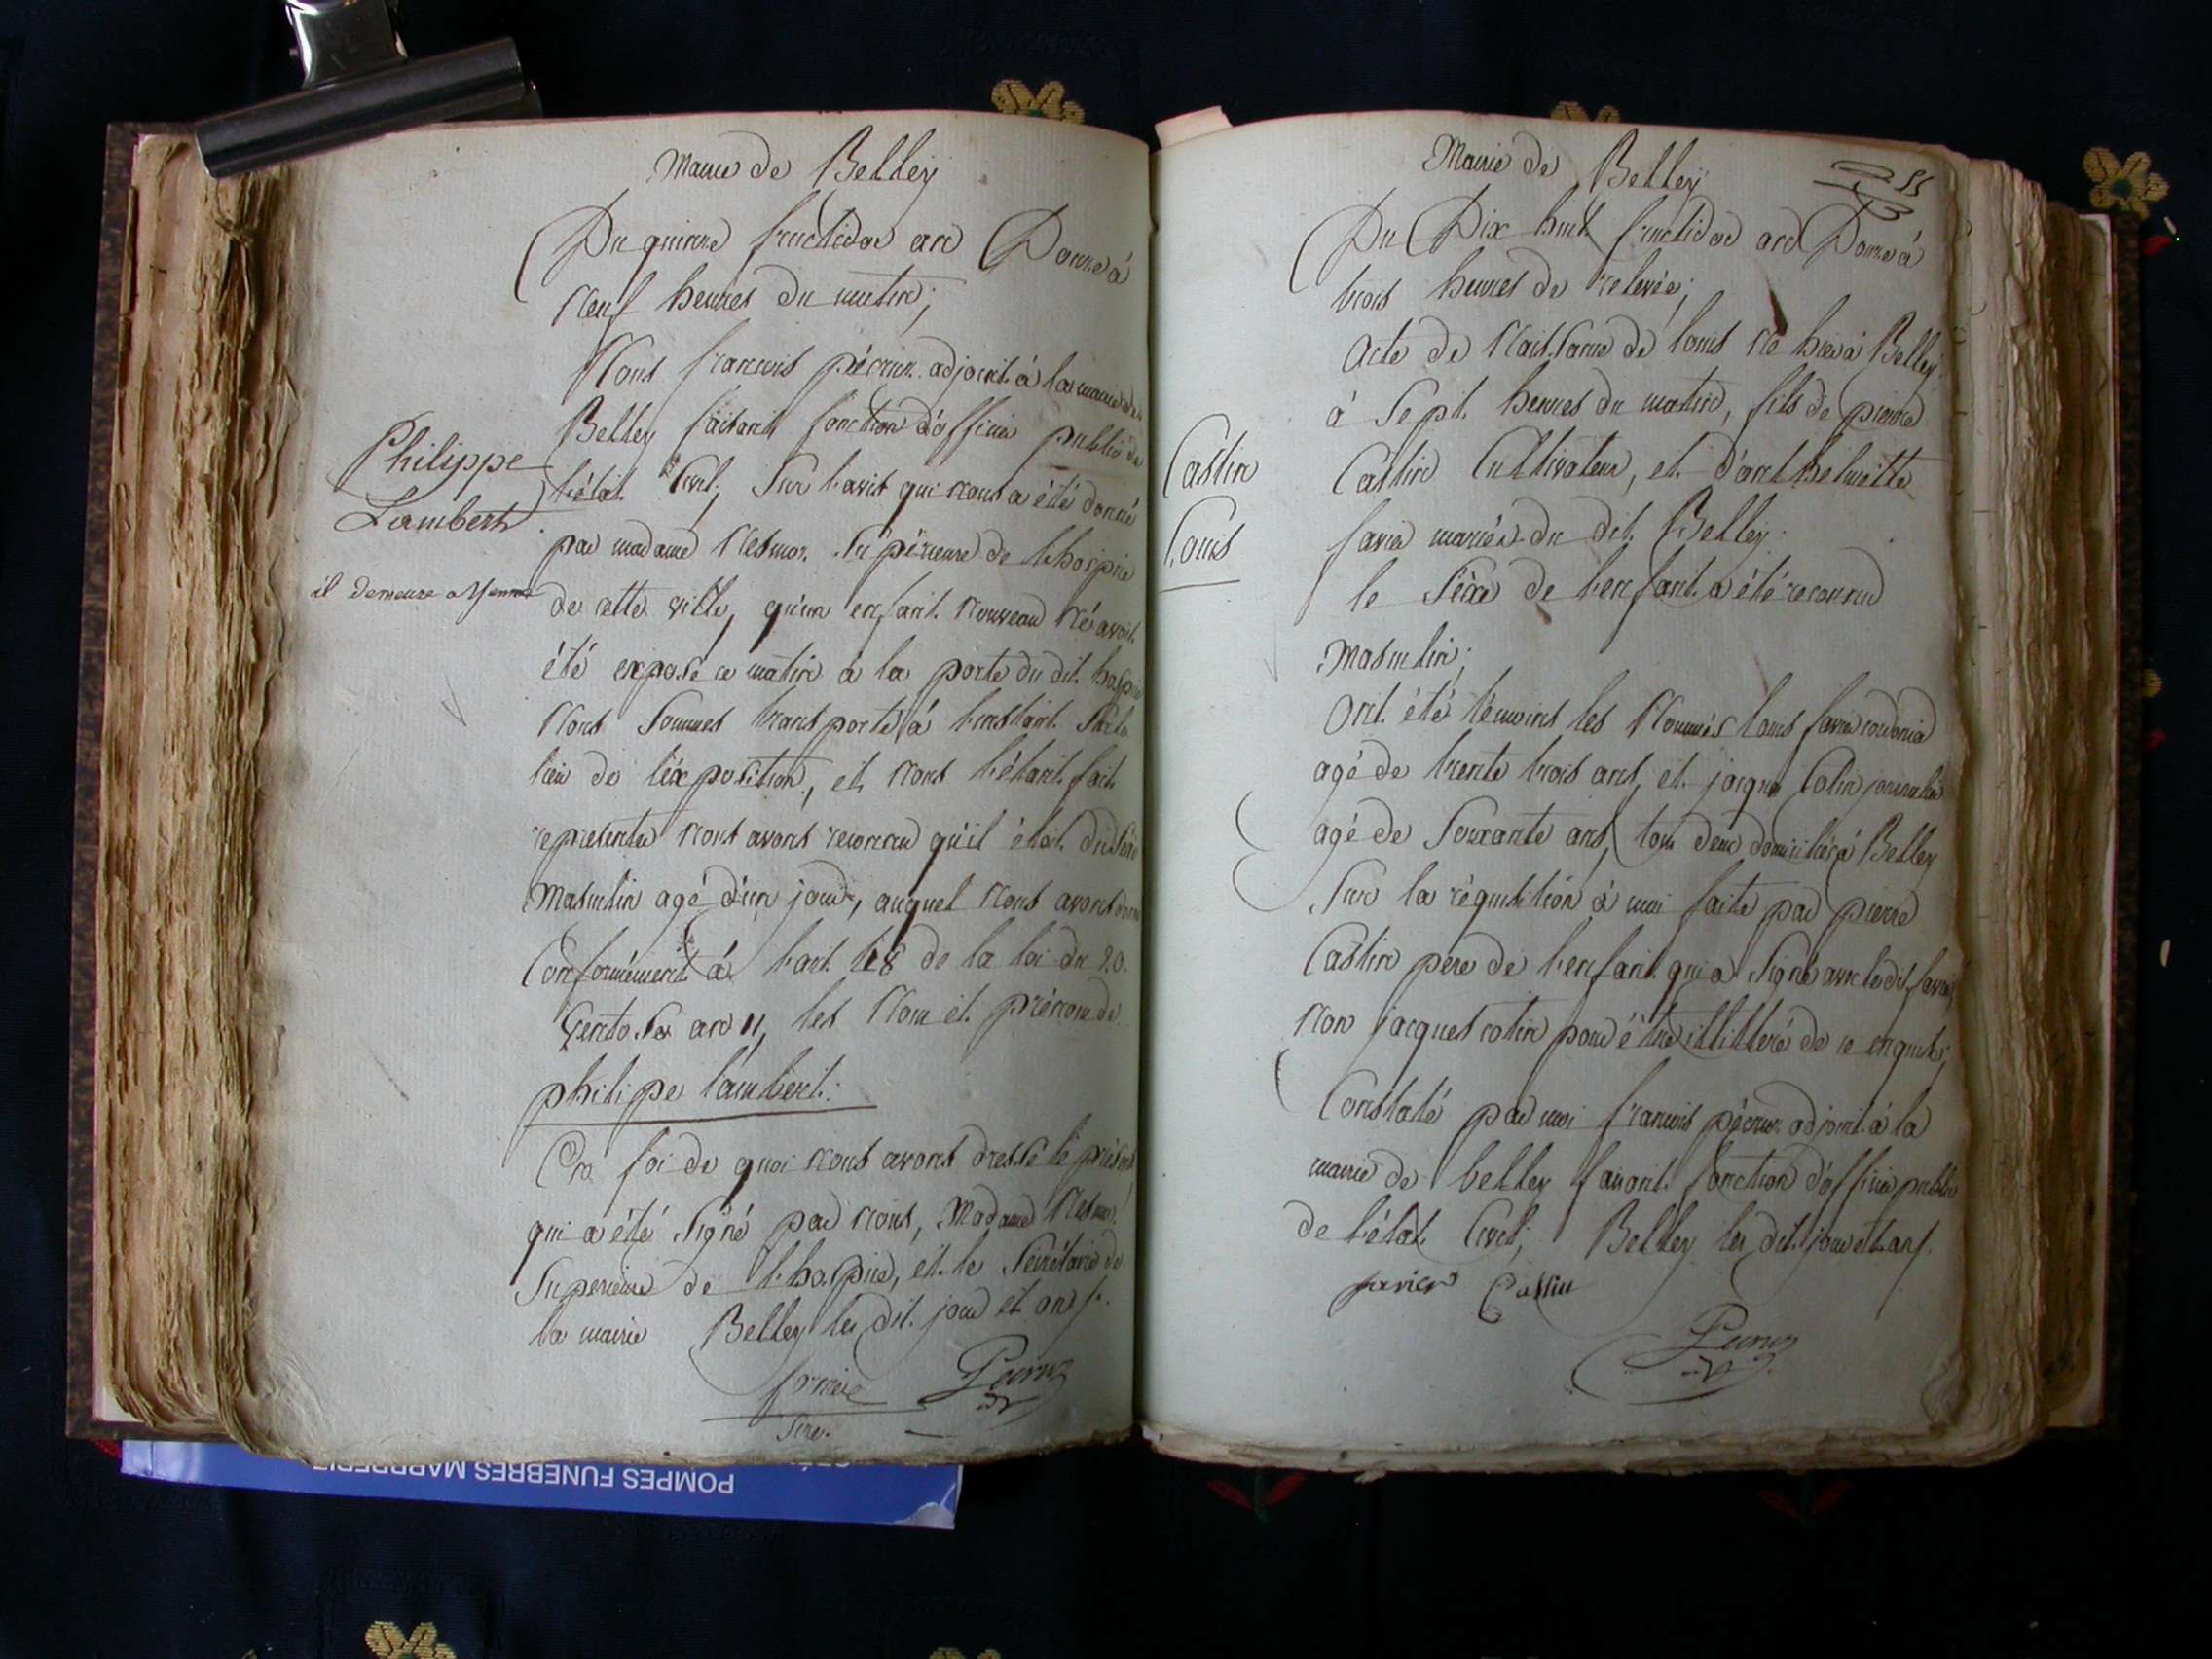 Mairie de Belley
Du quinze fructidor an Douze à
neuf heures du matin;
Nous françois adjoint à la mairie de
Belley faisant fonction d'officier public de
l'état Civil, Sur l'avis qui nous a été donné
par madame Supérieure de l'hospice
de cette ville, qu'un enfant nouveau né avoit
été exposé ce matin à la porte du dit hospice
nous Sommes transporté à l'instant Sur le
lieu de l'éxposition, et nous l'étant fait
représenter nous avons reconnu qu'il étoit du Séxe
masculin agé d'un jour, auquel nous avons donné
Conformément à l'art. de la loi du 20.
an 11, les nom et prénom de
philipe lambert.
En foi de quoi nous avons dressé le présent
qui a été Signé par nous, Madame
Supérieure de l'hospice, et le Sécrétaire de
la mairie Belley les dit. jour et an /.
Sire.
Philippe
Lambert
il demeure a Yenne
Mairie de Belley
55
Du Dix huit fructidor an Douze à
trois heures de relevée;
Acte de Naissance de louis né hier à Belley
à Sept heures du matin, fils de pierre
Castin Cultivateur, et d'anthelmette
favier mariés du dit Belley.
le Séxe de l'enfant a été reconnu
Masculin;
Ont été témoins les Nommés louis favier
agé de trente trois ans, et jacque Colin journalier
agé de Soixante ans, tous deux domiciliés à Belley
Sur la réquisition à moi faite par pierre
Castin pere de l'enfant qui a Signé avec le dit favier,
non jacques colin pour être illitteré de ce enquis;
Constaté par moi françois adjoint à la
mairie de belley faisant fonction d'officier public
de l'état Civil; Belley les dit. jour et an /.
favier Castin
Castin
Louis
POMPES FUNEBRES